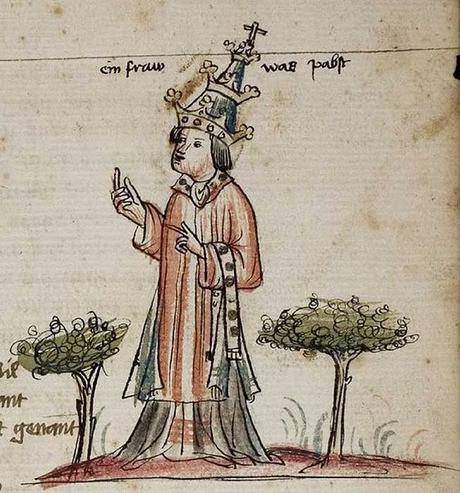 ein fraw was pabst
genant